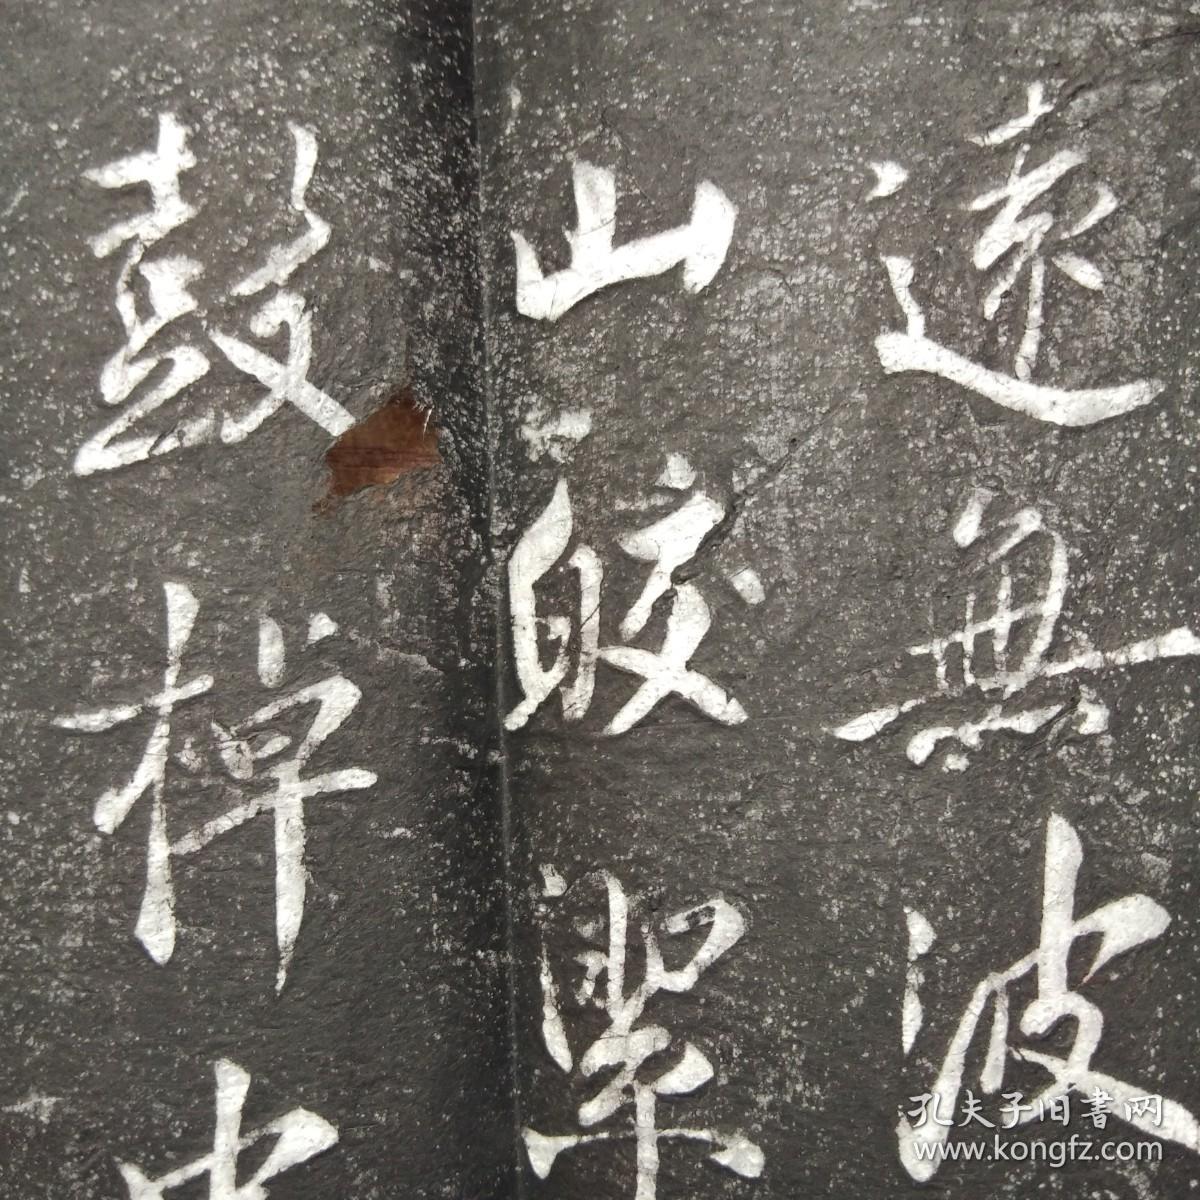 遠無波
山皎潔
鼓棹
孔夫子旧書网
www.kongfz.com